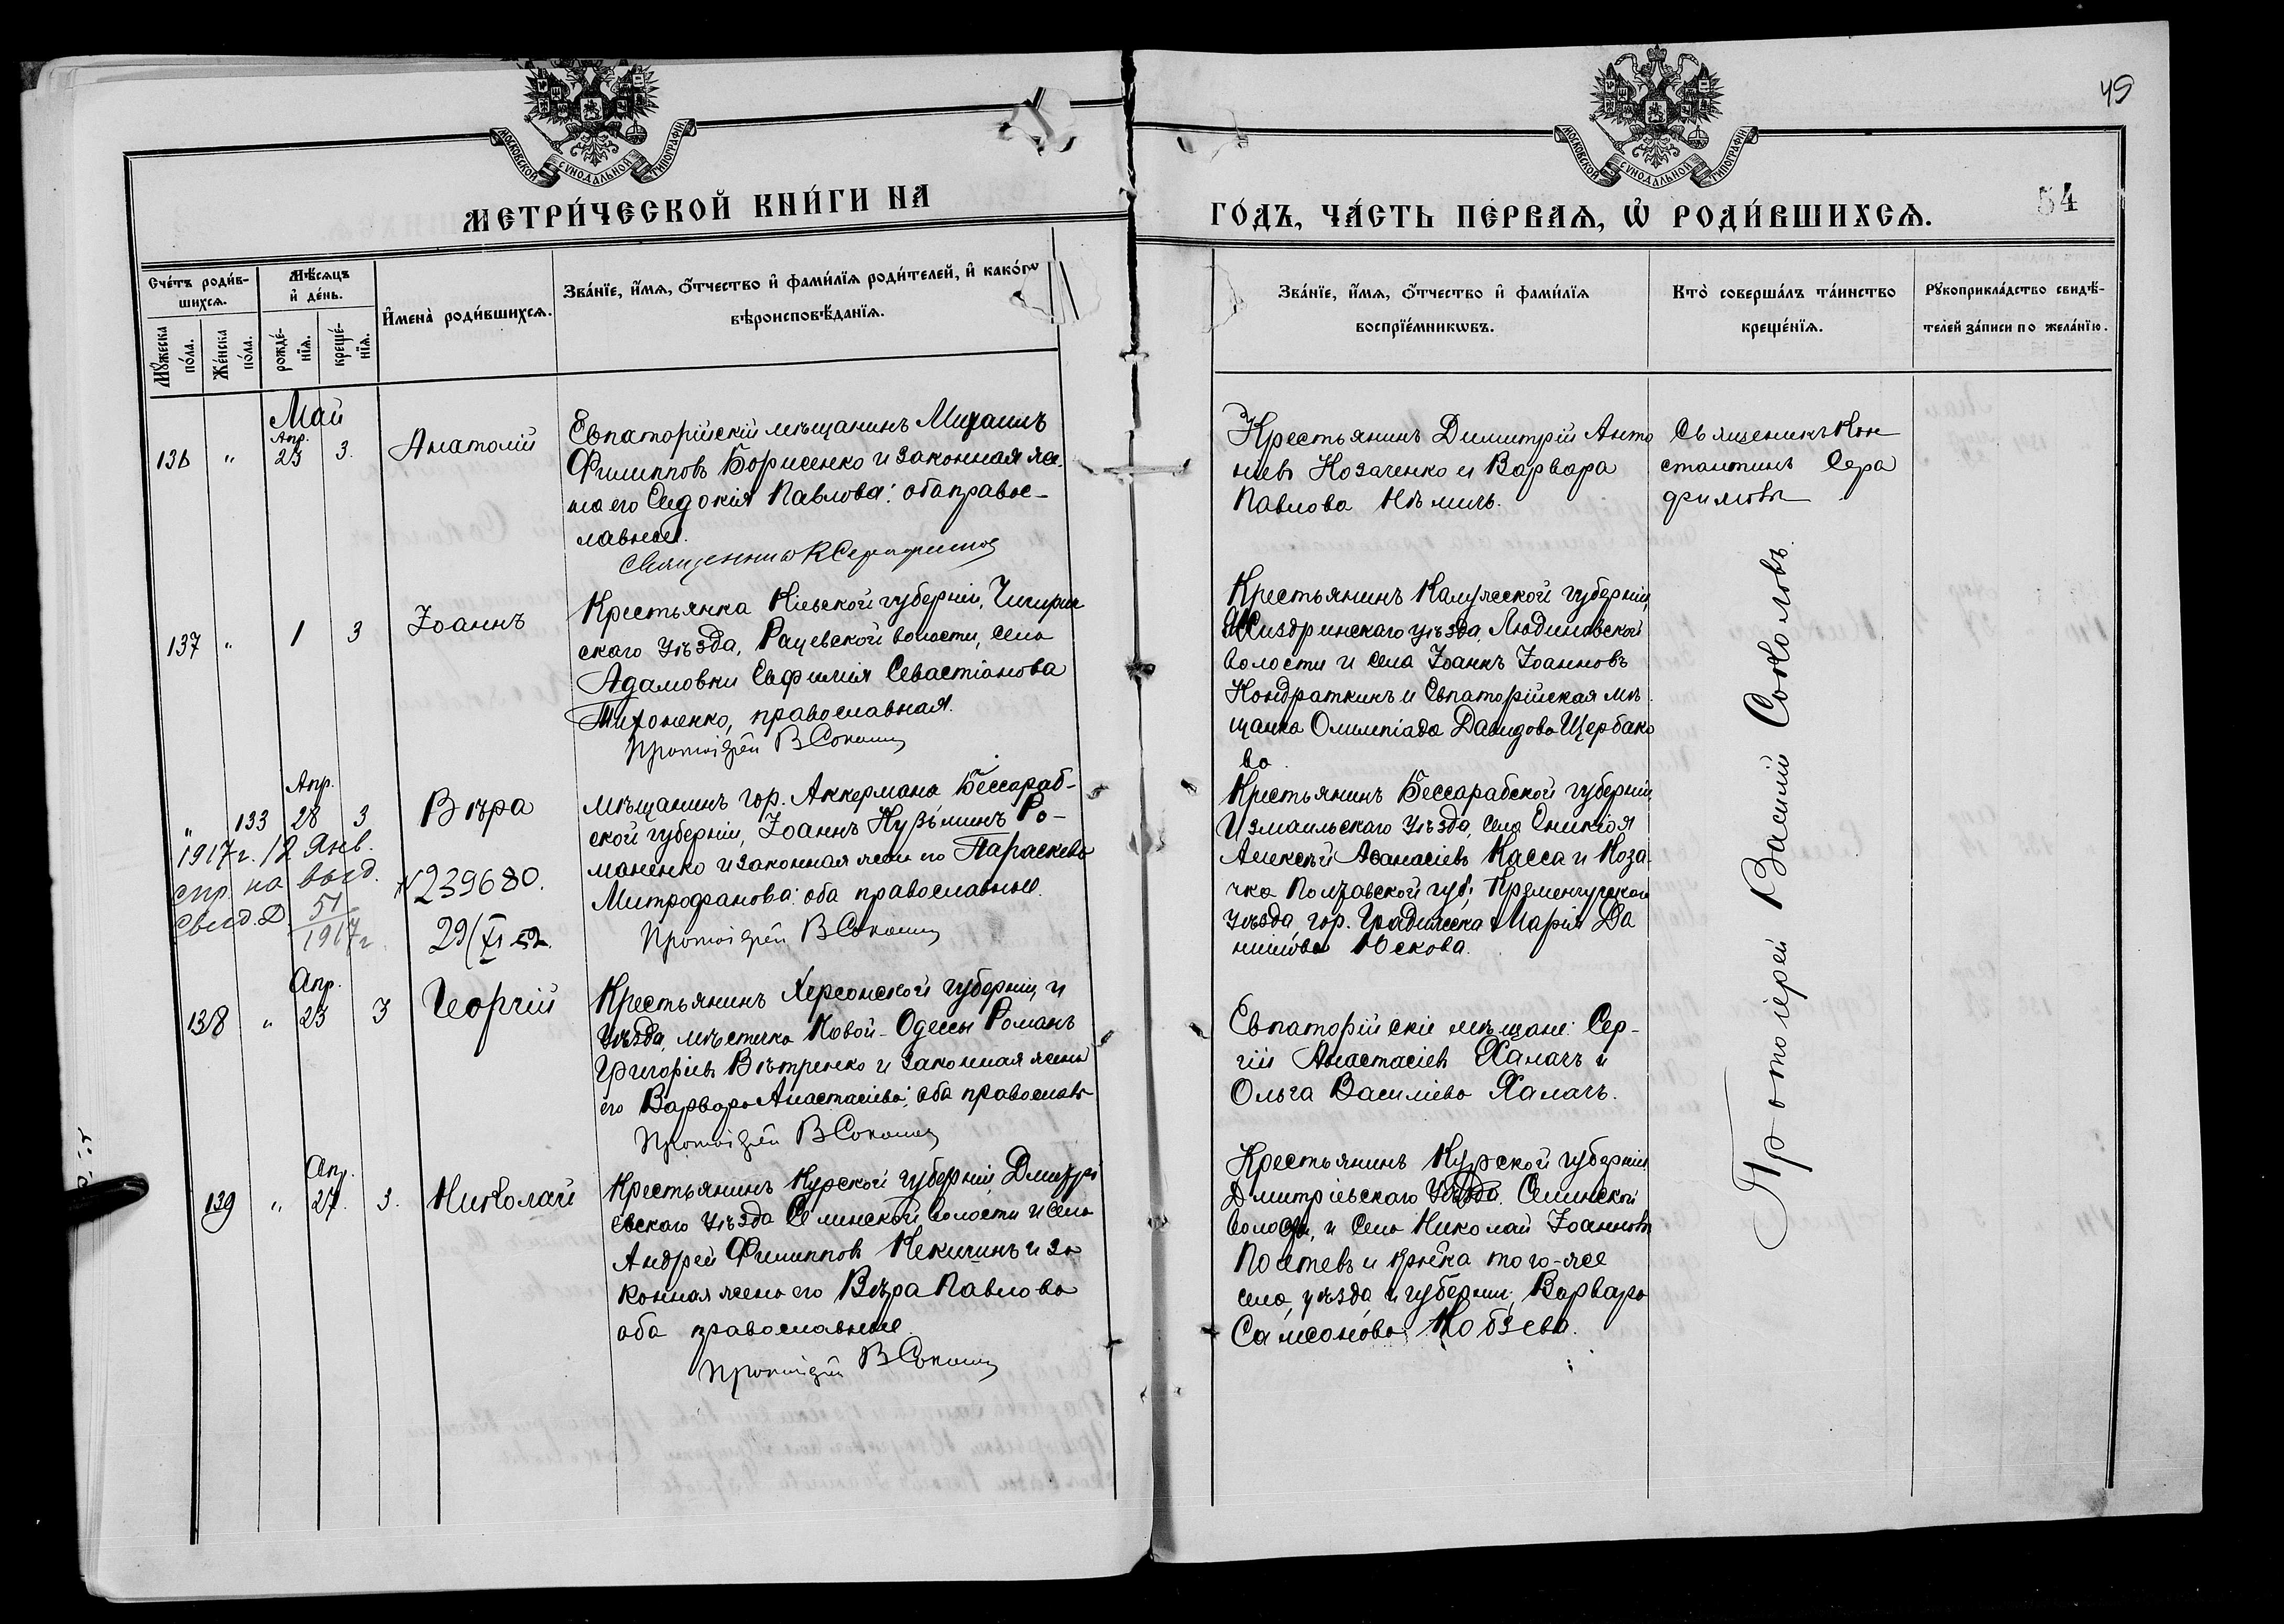 49
МОСКОВСКОЙ СѴНОДАЛЬНОЙ ТИПОГРАФІИ
МЕТРИ́ЧЕСКОЙ КНИ́ГИ НА
МОСКОВСКОЙ СѴНОДАЛЬНОЙ ТИПОГРАФІИ
ГО́ДЪ, ЧА́СТЬ ПЕ́РВАѦ, Ѡ҆ РОДИ́ВШИХСѦ.
54
Сче́тъ роди́в-
шихсѧ.
Мѣ́сѧцъ
и҆ де́нь.
Мꙋ́жеска
по́ла.
Же́нска
по́ла.
рожде́-
нїѧ.
креще́-
нїѧ.
И҆мена̀ роди́вшихсѧ.
Зва́нїе, и҆́мѧ, ѻ҆́тчество и҆ фами́лїѧ роди́телей, и҆ како́гѡ
вѣроисповѣ́данїѧ.
Зва́нїе, и҆́мѧ, ѻ҆́тчество и҆ фами́лїѧ
воспрїе́мникѡвъ.
Кто̀ соверша́лъ та́инство
креще́нїѧ.
Рꙋкоприкла́дство свидѣ́-
телей за́писи по жела́нїю.
Май
136 " Апр. 23 3. Анатолій
Евпаторійскій мѣщанинъ Михаилъ
Филипповъ Борисенко и законная же-
на его Евдокія Павлова: оба правос-
лавные.
Священникъ К Серафимов
Крестьянинъ Димитрій Анто
ніевъ Козаченко и Варвара
Павлова Нѣмичъ.
Священникъ Кон
стантинъ Сера
фимовъ
137 " 1 3 Іоаннъ
Крестьянка Кіевской губерніи, Чигирин
скаго уѣзда, Рацевской волости, села
Адамовки Евфимія Севастіанова
Тихоненко, православная.
Протоіерей В Соколов
Крестьянинъ Калужской губерніи,
Жиздринскаго уѣзда, Людиновской
волости и села Іоаннъ Іоанновъ
Кондраткинъ и Евпаторійская мѣ
щанка Олимпіада Давидова Щербако
ва.
Протоіерей Василій Соколовъ.
" 133 Апр. 28 3 Вѣра
1917 г. 12 Янв.
спр. на выд.
свид. № 51
1917 г.
№ 239680.
29/XI 52.
Мѣщанинъ гор. Аккермана Бессараб-
ской губерніи, Іоаннъ Кузьминъ Ро-
маненко и законная жена его Параскева
Митрофанова: оба православные.
Протоіерей В Соколов
Крестьянинъ Бессарабской губерніи,
Измаильскаго уѣзда, села
Алексѣй Аѳанасіевъ Касса и Коза-
чка Полтавской губ., Кременчугскаго
уѣзда, гор. Градижска Марія Да
нилова Юскова.
138 " Апр. 23 3 Георгій
Крестьянинъ Херсонской губерніи и
уѣзда, мѣстечка Новой-Одессы Романъ
Григоріевъ Вѣтренко и законная жена
его Варвара Анастасіева; оба православ-
Протоіерей В Соколов
Евпаторійскіе мѣщане: Сер-
гій Анастасіевъ Халачъ и
Ольга Василіева Халачъ.
139 " Апр. 27. 3. Николай
Крестьянинъ Курской губерніи Дмитрі
евскаго уѣзда Селинской волости и села
Андрей Филипповъ Кекичинъ и за
конная жена его Вѣра Павлова
оба православные.
Протоіерей В Соколов
Крестьянинъ Курской губерніи
Дмитріевскаго уѣзда, Селинской
волости, и села Николай Іоанновъ
и кр-нка того-же
села, уѣзда и губерніи, Варвара
Самсонова Кобзева.